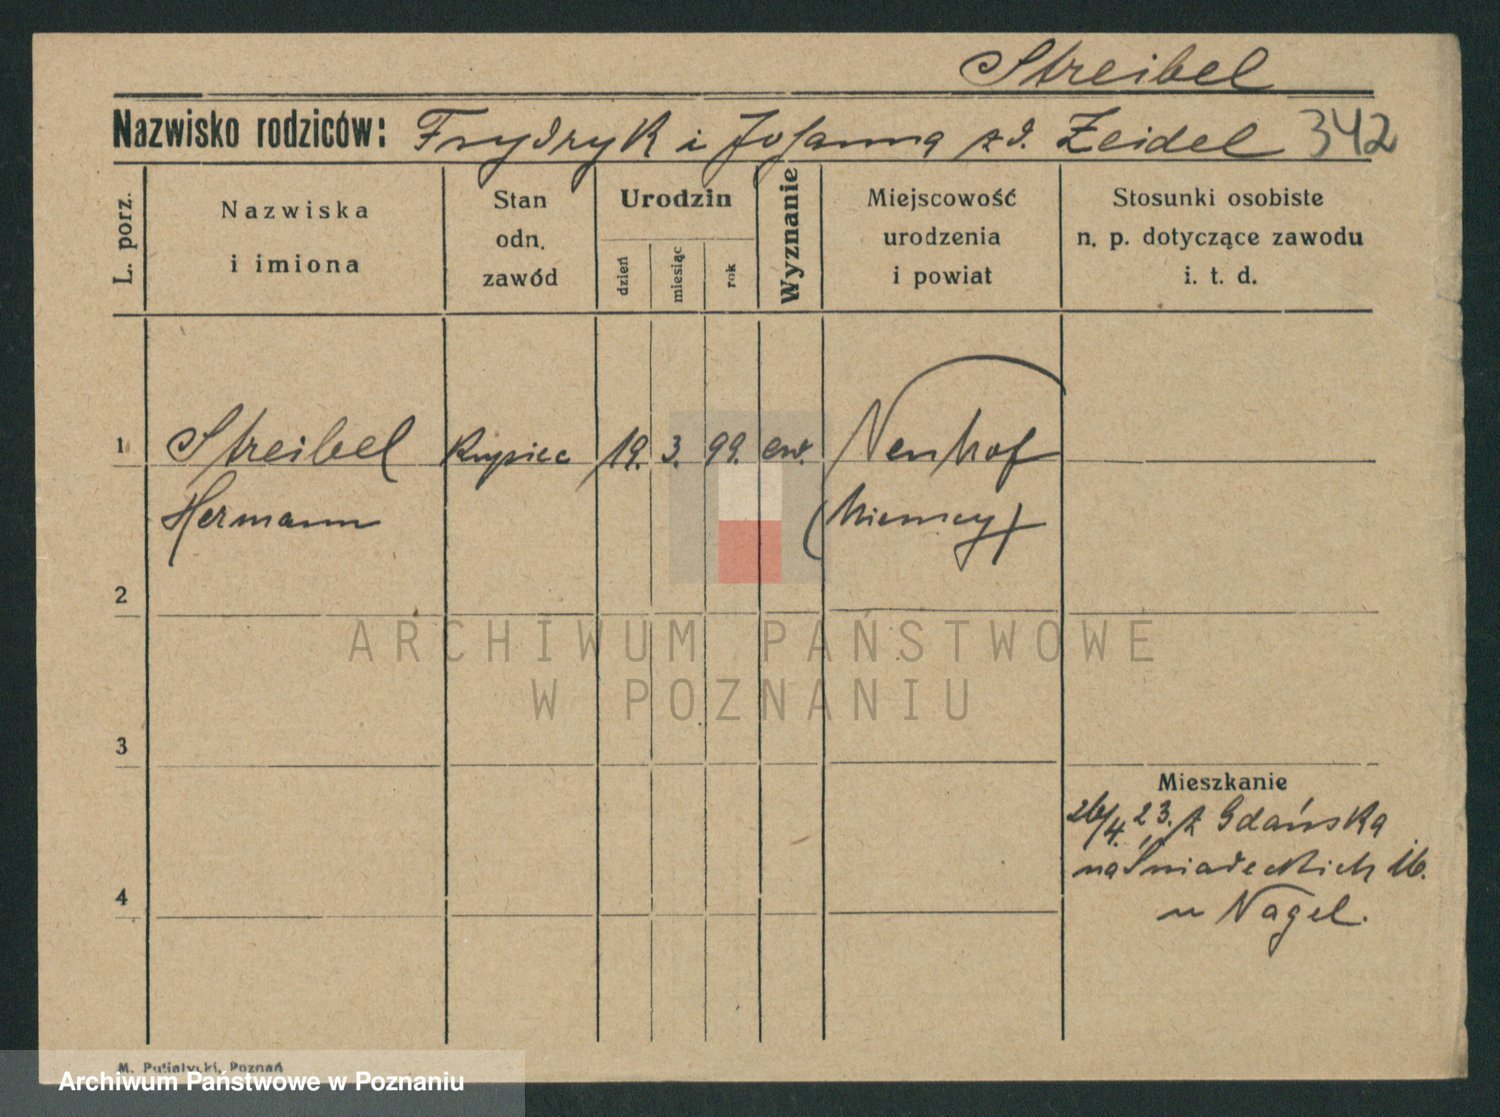 Streibel
Nazwisko rodziców: Frydryk i Johanna zd. Zeidel 342
L. porz.
Nazwiska
i imiona
Stan
odn.
zawód
Urodzin
dzień
miesiąc
rok
Wyznanie
Miejscowość
urodzenia
i powiat
Stosunki osobiste
n. p. dotyczące zawodu
i. t. d.
1 Streibel kupiec 19. 3. 99. ew. Neuhof
Hermann (Niemcy)
2
3
4
Mieszkanie
26/4. 23. z Gdańska
na Śniadeckich 16.
u Nagel.
M. Putiatycki, Poznań
ARCHIWUM PAŃSTWOWE
W POZNANIU
Archiwum Państwowe w Poznaniu